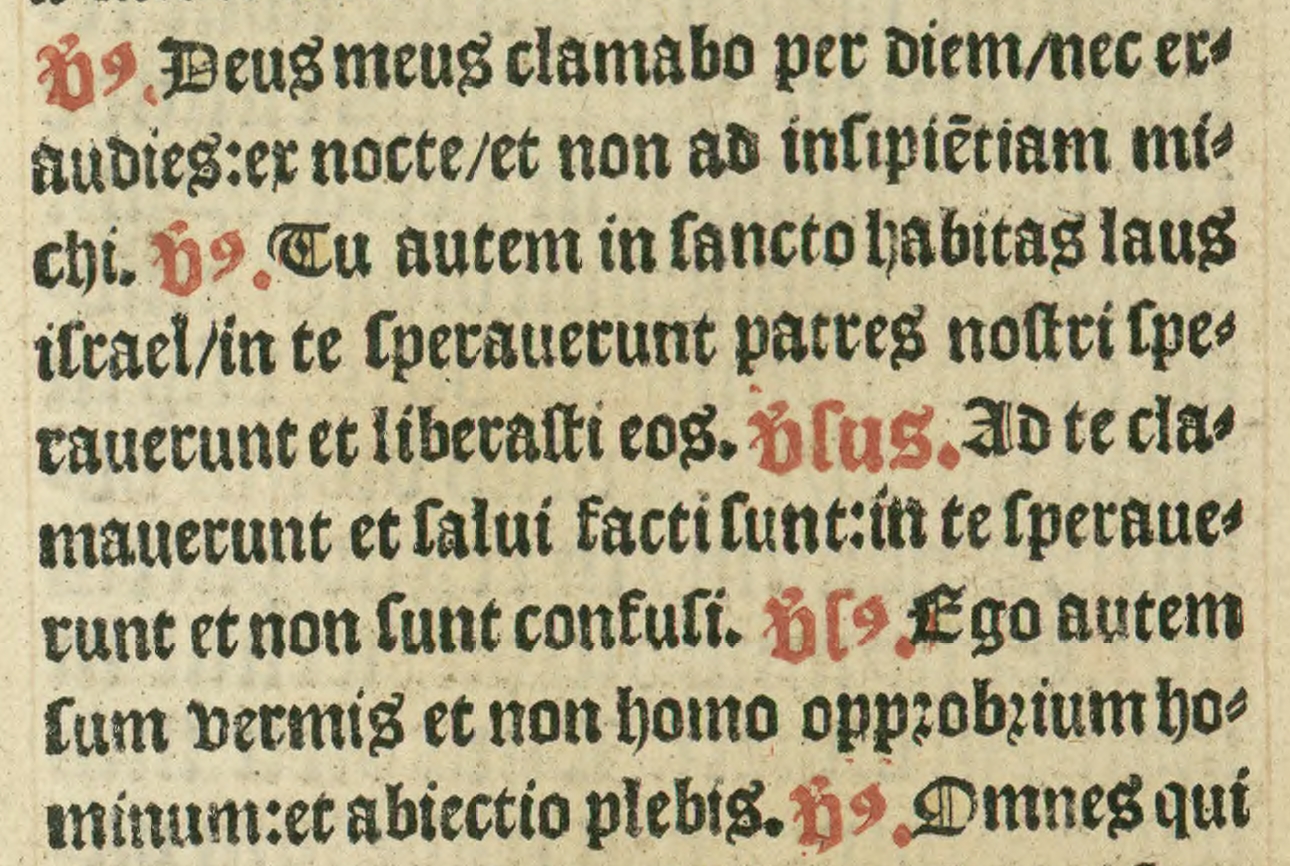 v̉ꝰ. Deus meus clamabo per diem/nec er⸗
audies:ex nocte/et non ad inſipiētiam mi⸗
chi. v̉ꝰ. Tu autem in ſancto habitas laus
iſrael/in te ſperauerunt patres noſtri ſpe⸗
rauerunt et liberaſti eos. v̉ſus. Ad te cla⸗
mauerunt et ſalui facti ſunt:in te ſperaue⸗
runt et non ſunt confuſi. v̉ſꝰ. Ego autem
ſum vermis et non homo opprobrium ho⸗
minum:et abiectio plebis. v̉ꝰ. Omnes qui